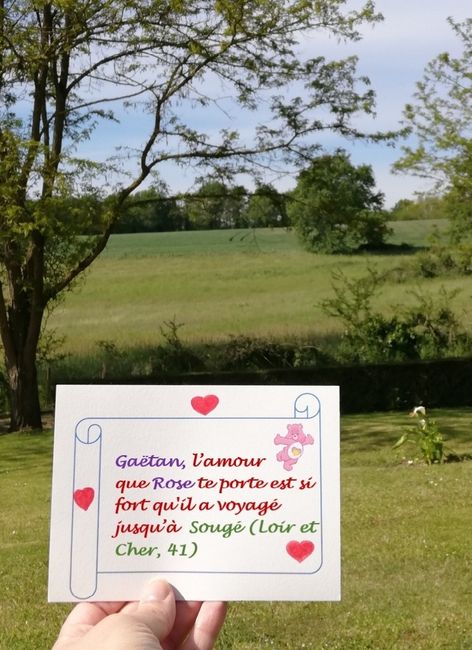 Gaëtan, l'amour
que Rose te porte est si
fort qu'il a voyagé
jusqu'à Sougé (Loir et
Cher, 41)